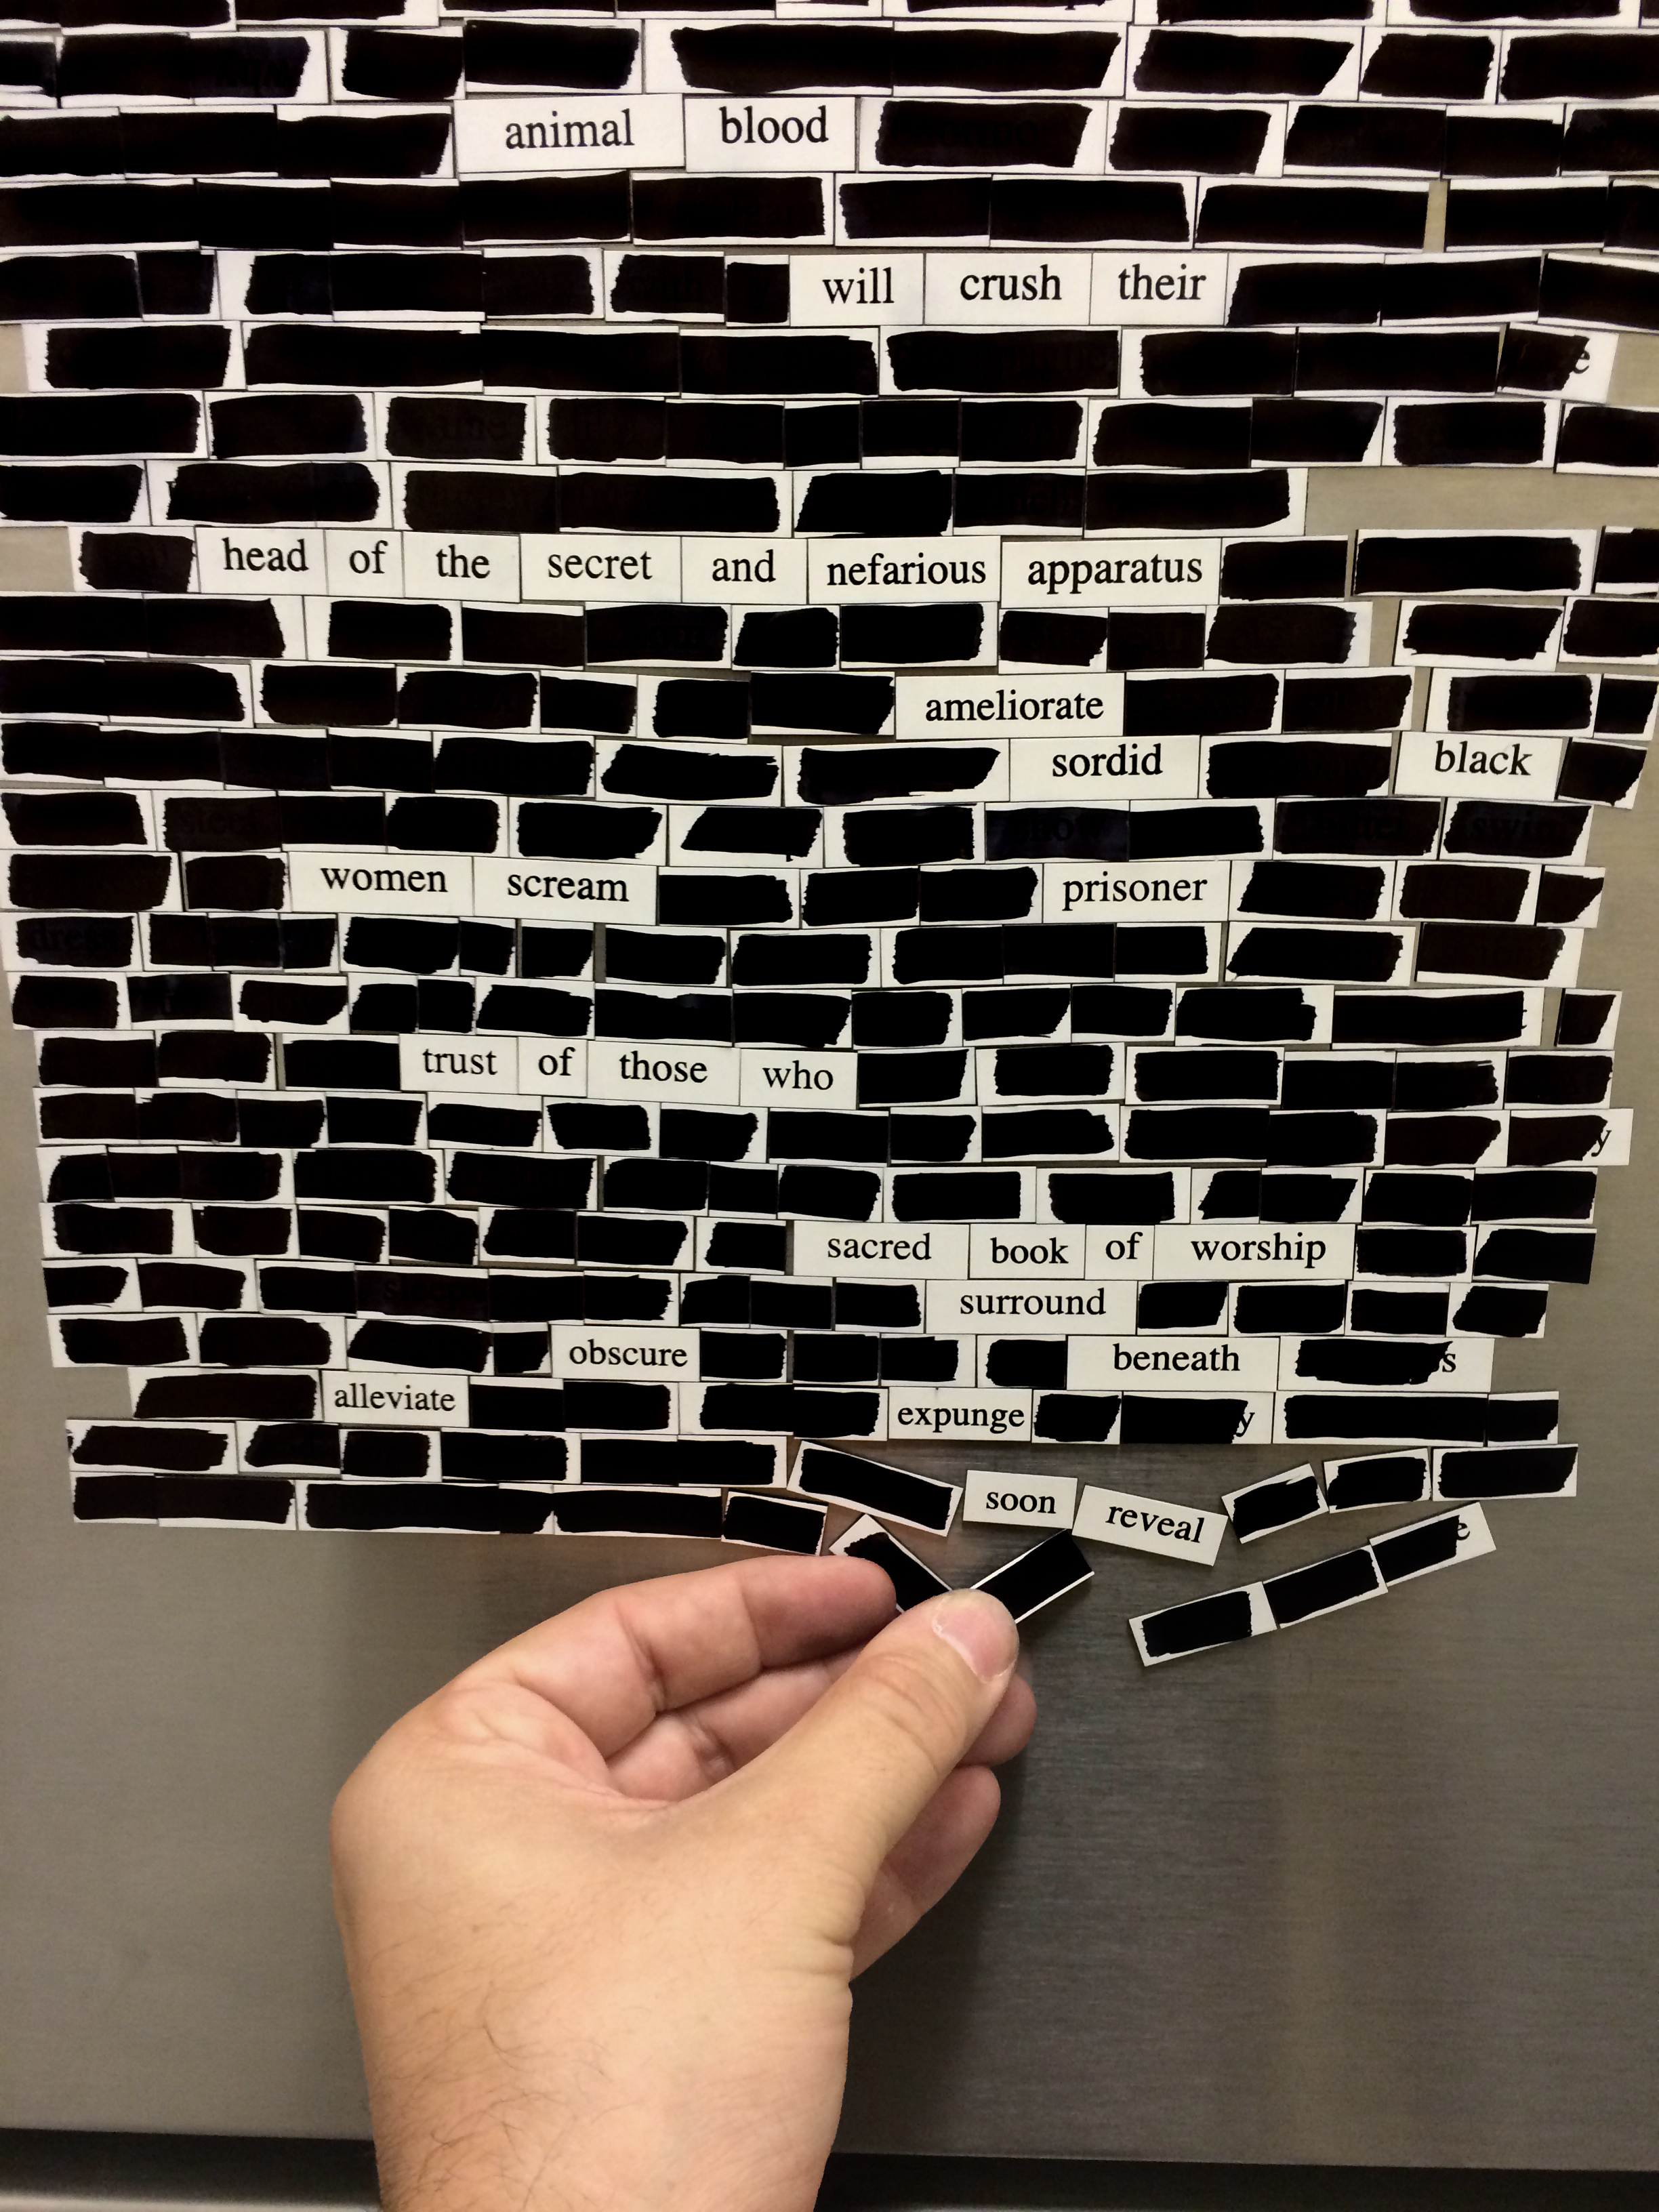 animal blood
will crush their
head of the secret and nefarious apparatus
ameliorate
sordid black
women scream prisoner
trust of those who
sacred book of worship
surround
obscure beneath
alleviate expunge
soon reveal